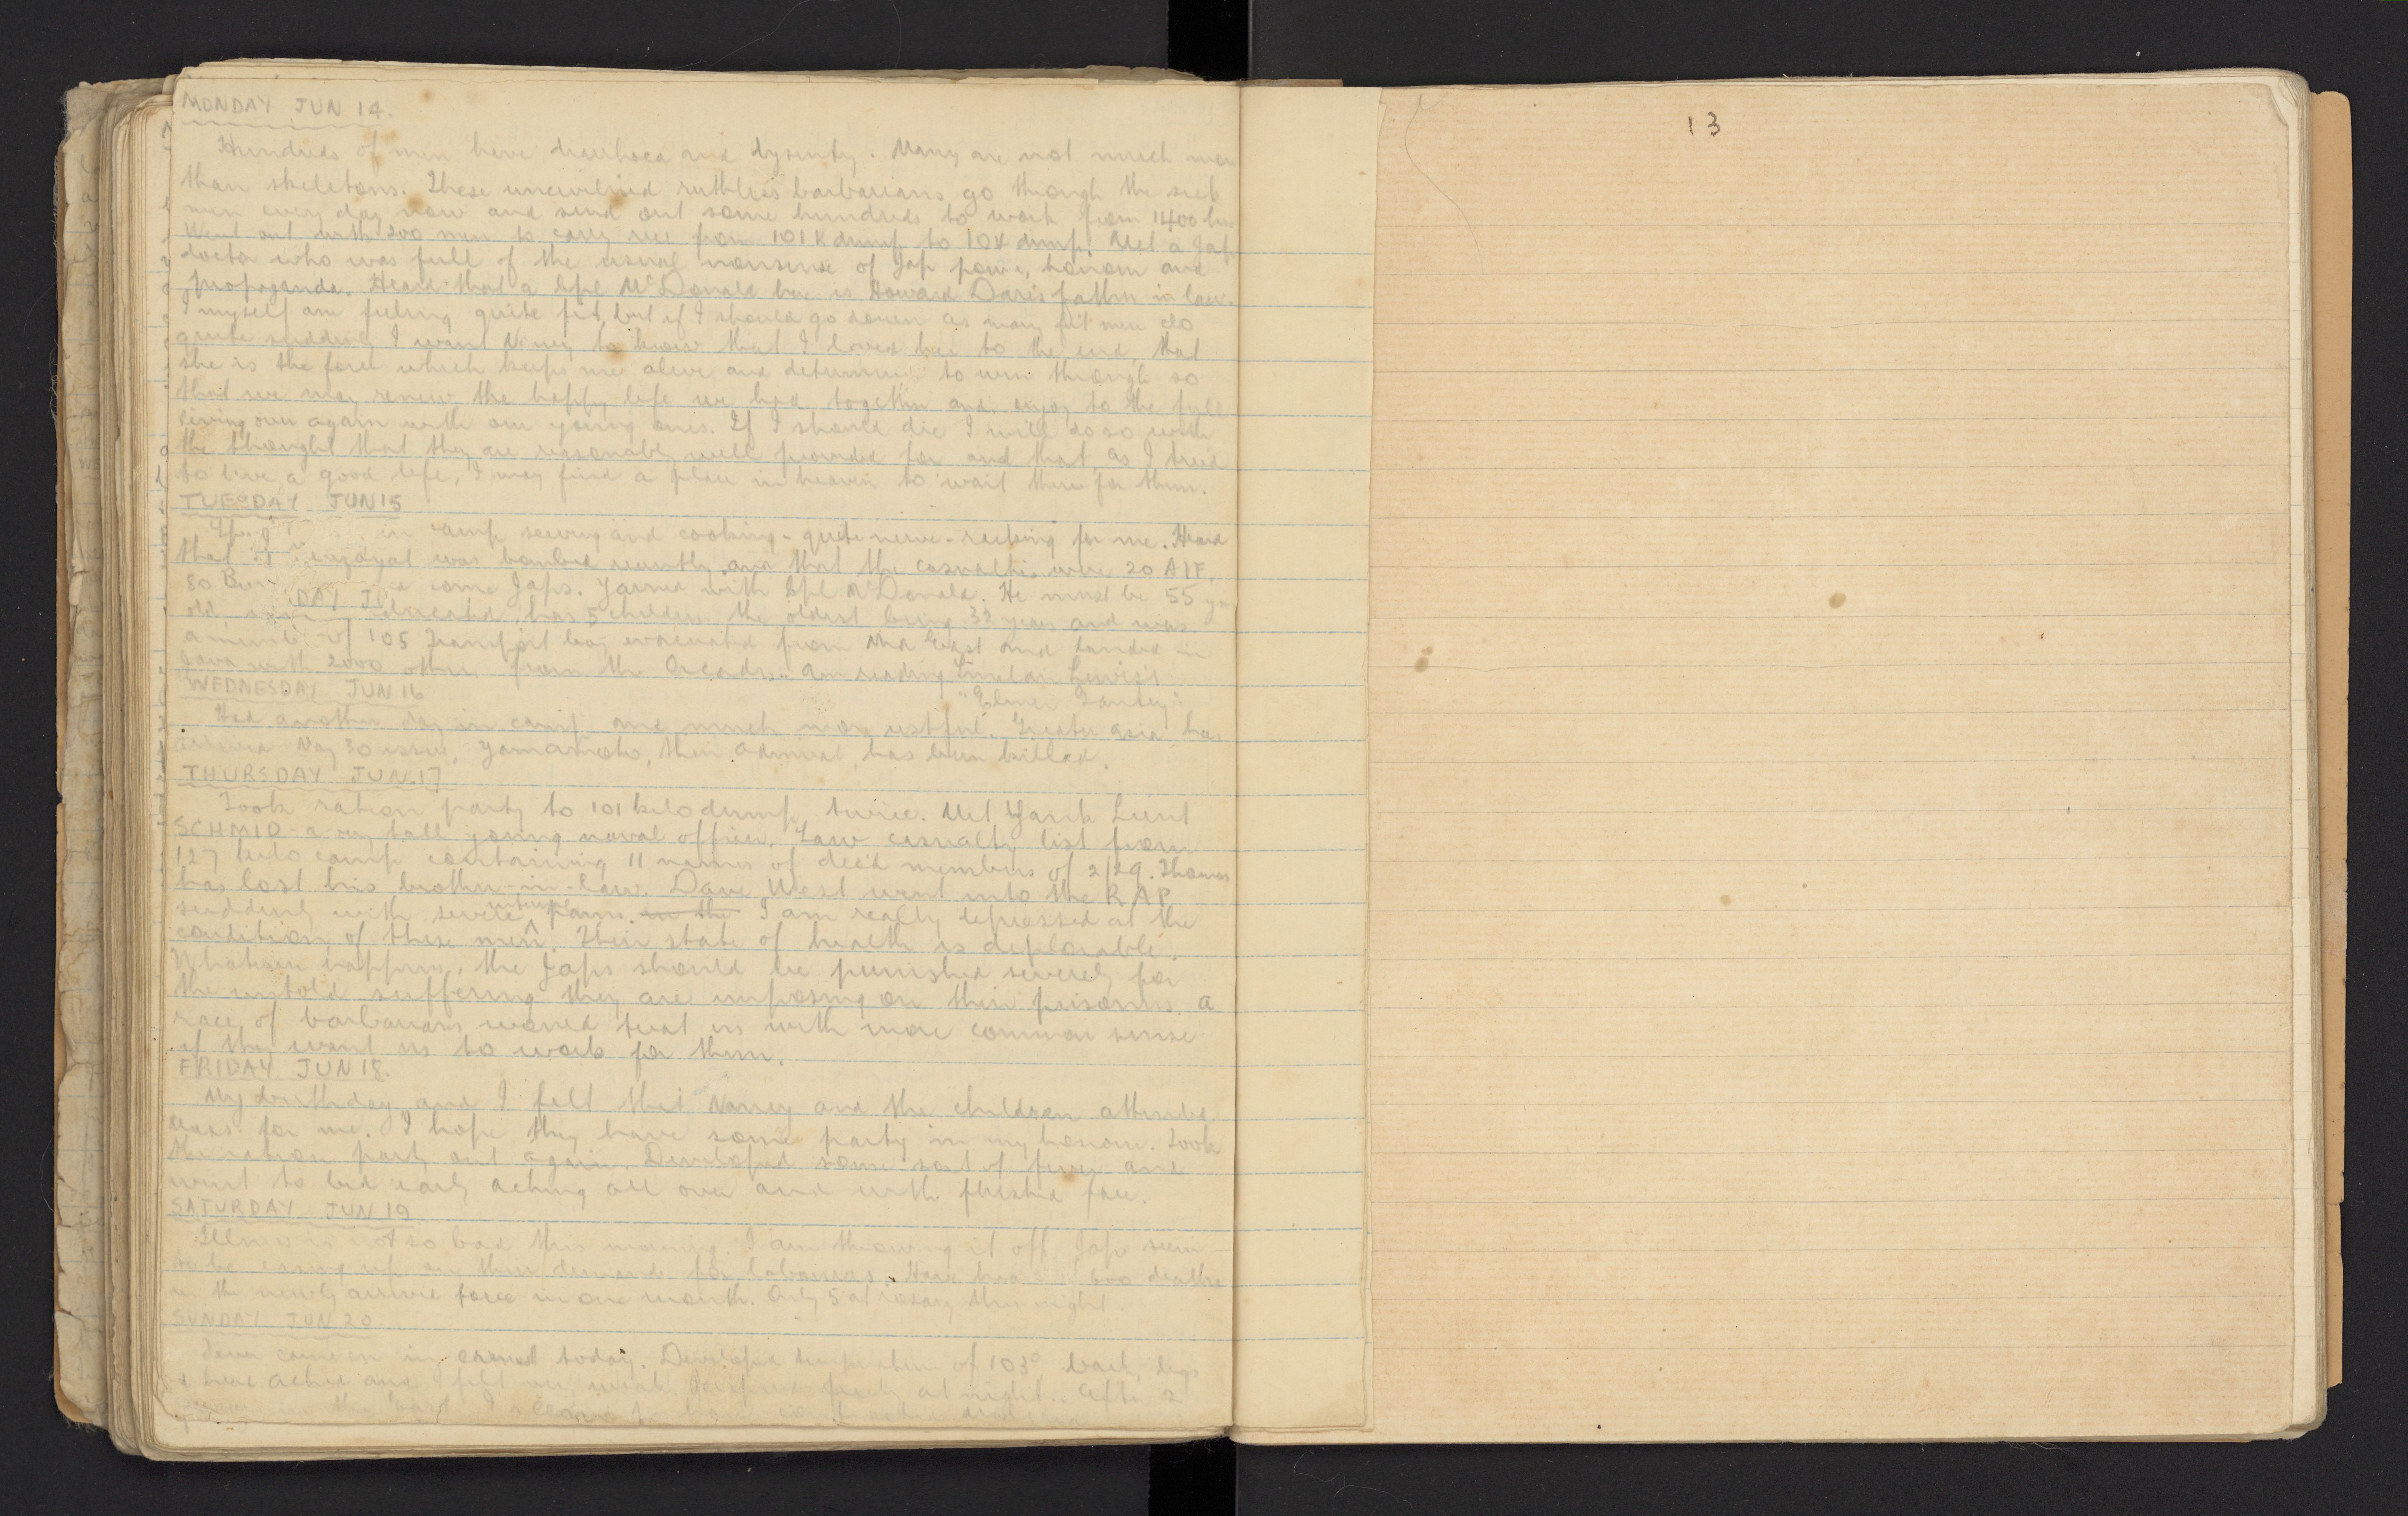 MONDAY JUN 14.
Hundreds of men have diarrhoea and dysentry. Many are not much more
than skeletons. These uncivilized ruthless barbarians go through the sick
men every day now and send out some hundreds to work from 1400 hrs
Went out with 200 men to carry rice from 101K dump to 104 dump. Met a Jap
doctor who was full of the usual nonsense of Jap power, honour and
propaganda. Heard that a Cpl McDonald here is Howard Daris father in law.
I myself am feeling quite fit, but if I should go down as many fit men do
quite suddenly I want Nancy to know that I loved her to the end, that
she is the force which keeps me alive and determined to win through so
that we may renew the happy life we had together and enjoy to the full
living over again with our young ones. If I should die I will do so with
the thought that they are reasonably well provided for and that, as I tried
to live a good life, I may find a place in heaven to wait there for them.
TUESDAY JUN 15
in camp sewing and cooking - quite nerve-racking for me. Heard
that was bombed recently and that the casualties were 20 AIF,
80 some Japs. Yarned with Cpl McDonald. He must be 55 yrs
old, has 5 children the oldest being 32 years and was
a member of 105 Transport Coy evacuated from Mid East and landed in
Java with 2000 others from the Orcades. Am reading Sinclair Lewis's
"Elmer Gantry"
WEDNESDAY JUN 16
Had another day in camp and much more restful. Greater Asia has
arrived May 30 issue. Yamamoto, their Admiral, has been killed.
THURSDAY JUN 17
Took ration party to 101 kilo dump twice. Met Yank Lieut
SCHMID - a very tall young naval officer. Saw casualty list from
127 kilo camp containing 11 names of dec'd members of 2/29. Thomas
has lost his brother-in-law. Dave West went into the R.A.P.
suddenly with severe internal pains. in the I am really depressed at the
condition of these men. Their state of health is deplorable.
Whatever happens, the Japs should be punished severely for
the untold suffering they are imposing on their prisoners. A
race of barbarians would treat us with more common sense
if they want us to work for them.
FRIDAY JUN 18.
My birthday and I felt that Nancy and the children attended
mass for me. I hope they have some party in my honour. Took
the ration party out again. Developed some sort of fever and
went to bed early aching all over and with flushed face.
SATURDAY JUN 19
Illness is not so bad this morning. I am throwing it off. Japs seem
to be easing up on their demands for labourers. Have had 600 deaths
in the newly arrived force in one month. Only 5 at rosary this night.
SUNDAY JUN 20
Fever came on in earnest today. Developed temperature of 103° back, legs
head ached and I felt very weak. Perspired freely at night. After 2
13